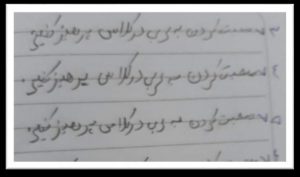 ۳- صحبت کردن به عربی در کلاس پرهیز کنیم.
۴- صحبت کردن به عربی در کلاس پرهیز کنیم.
۵- صحبت کردن به عربی در کلاس پرهیز کنیم.